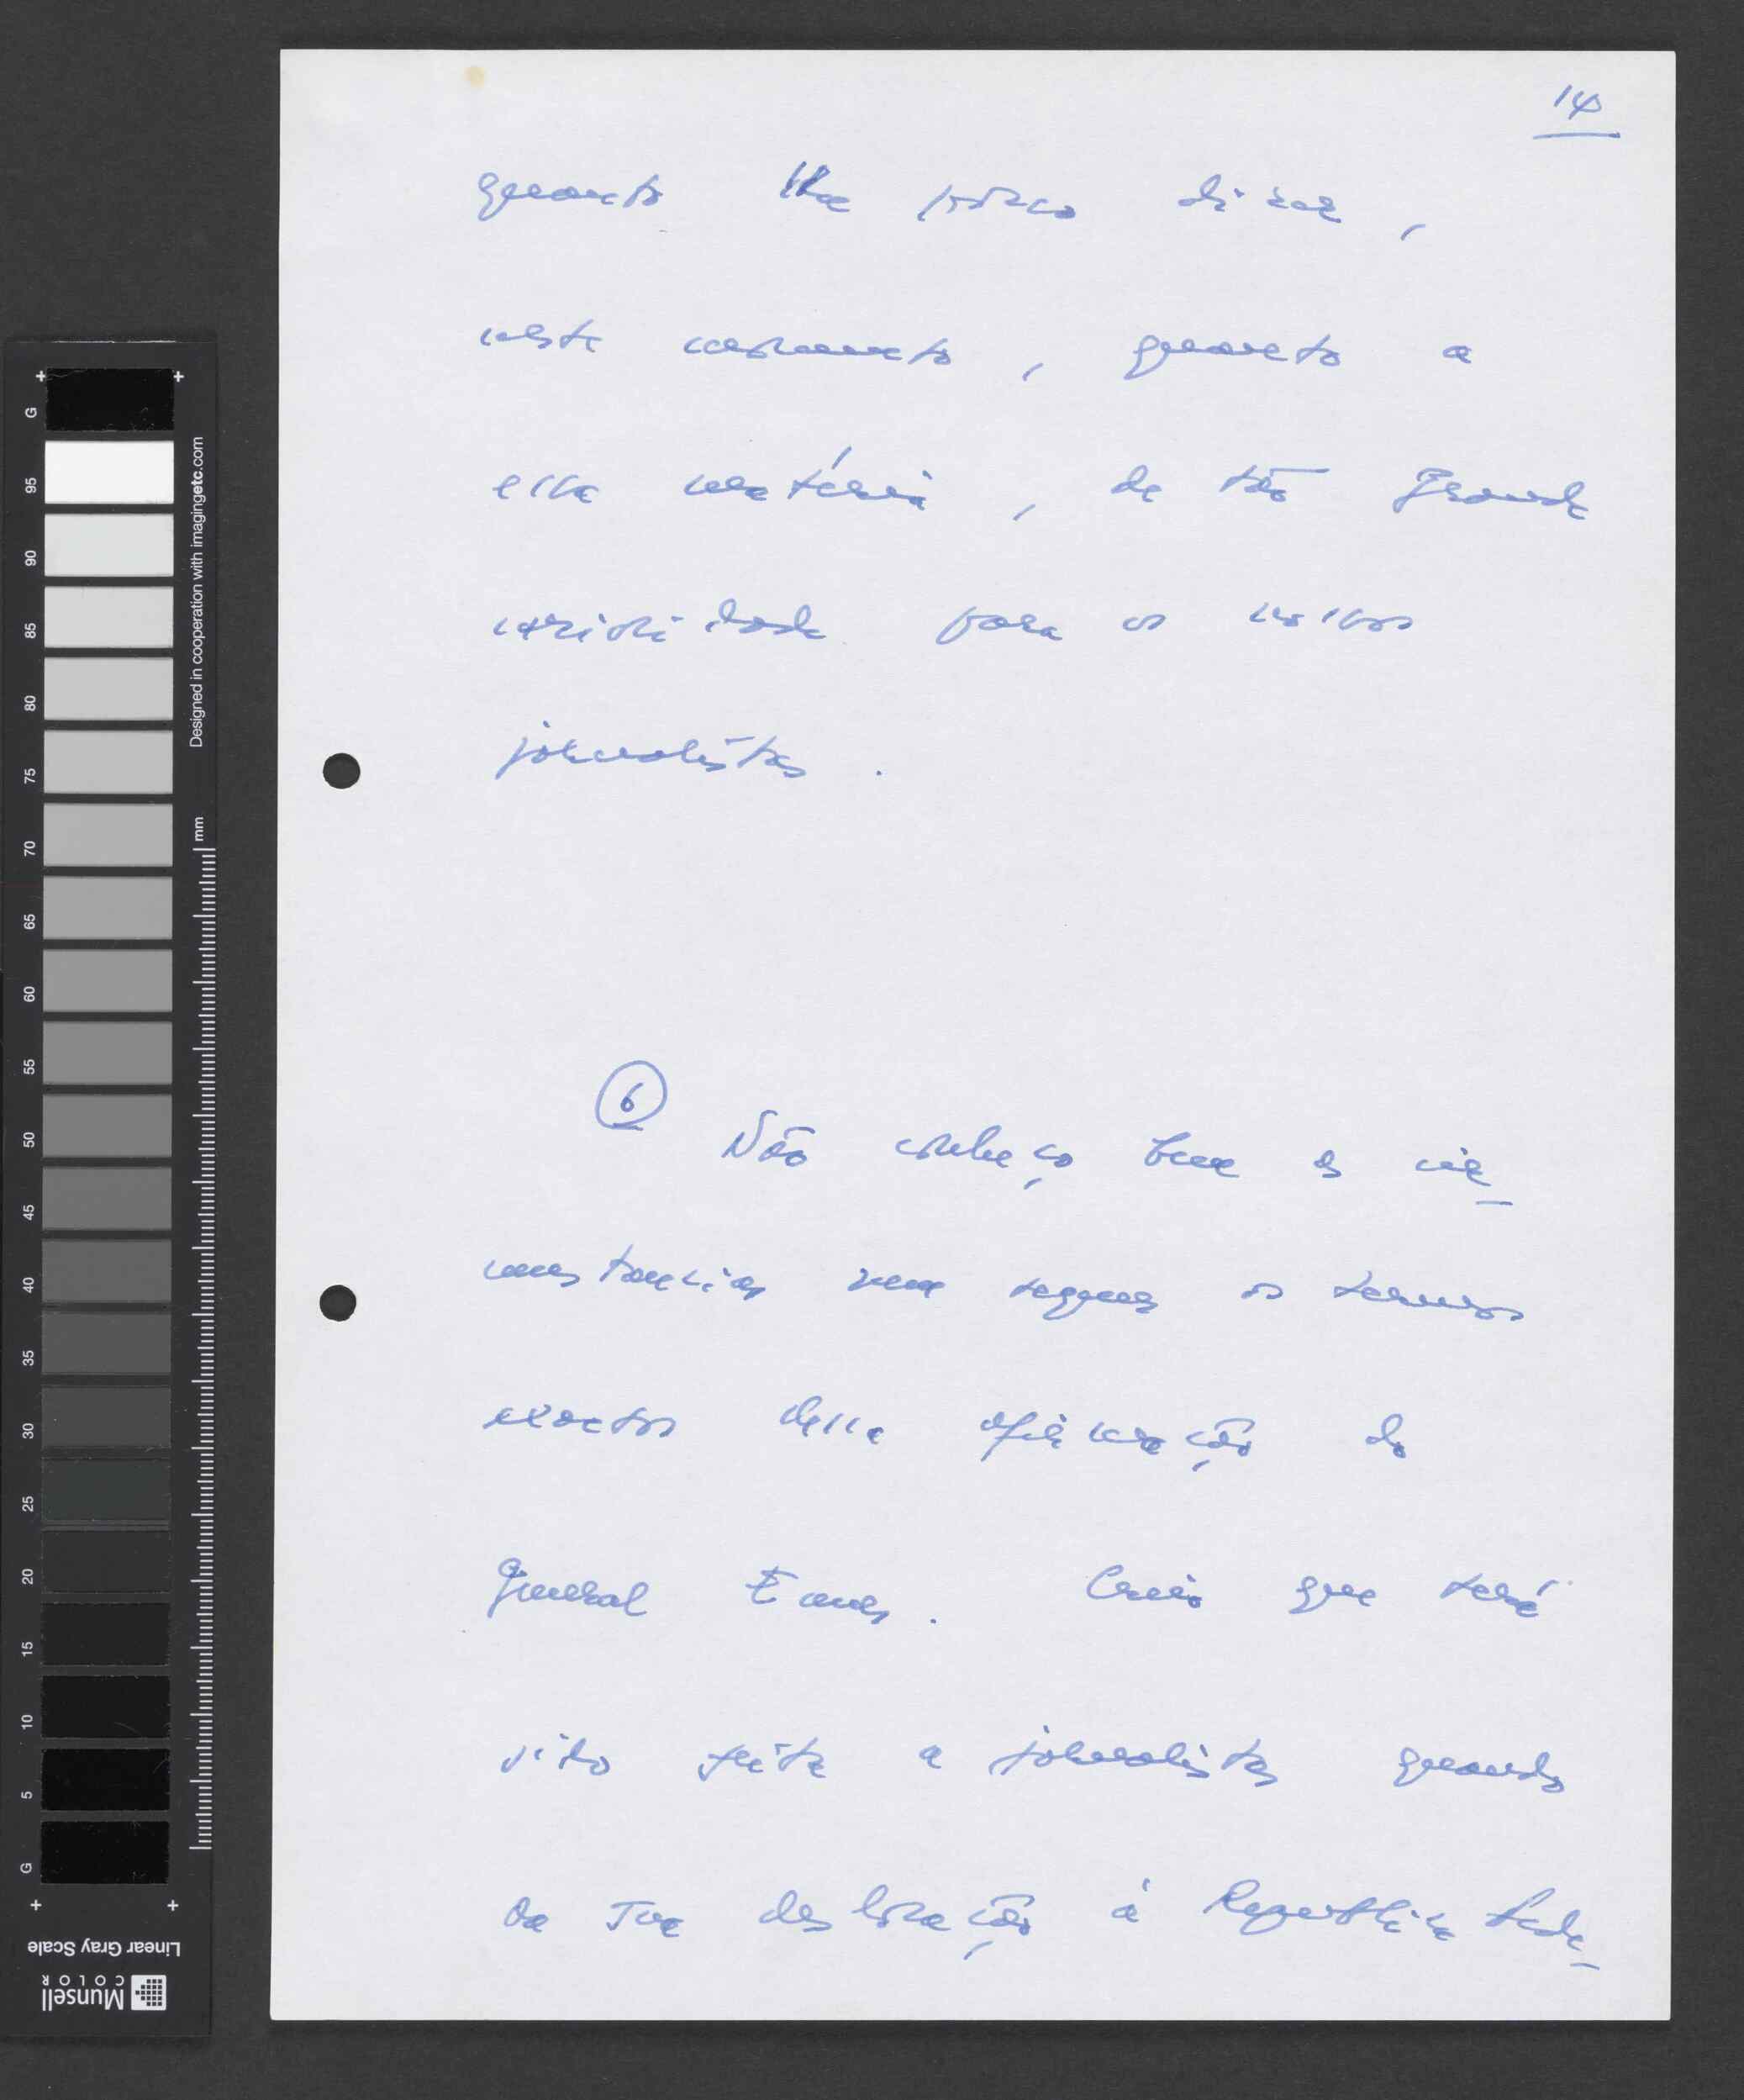 14
quanto lhe posso dizer,
neste momento, quanto a
essa matéria, de tão grande
curiosidade para os nossos
jornalistas.
6 Não conheço bem as cir-
cunstancias nem sequer os termos
exactos dessa afirmação do
General Eanes. Creio que terá
sido feita a jornalistas quando
da sua deslocação à Republica Fede-
G
95
90
85
80
75
70
65
60
55
50
45
40
35
30
25
20
15
10
5
G
Designed in cooperation with imagingetc.com
mm
Linear Gray Scale
Munsell
COLOR